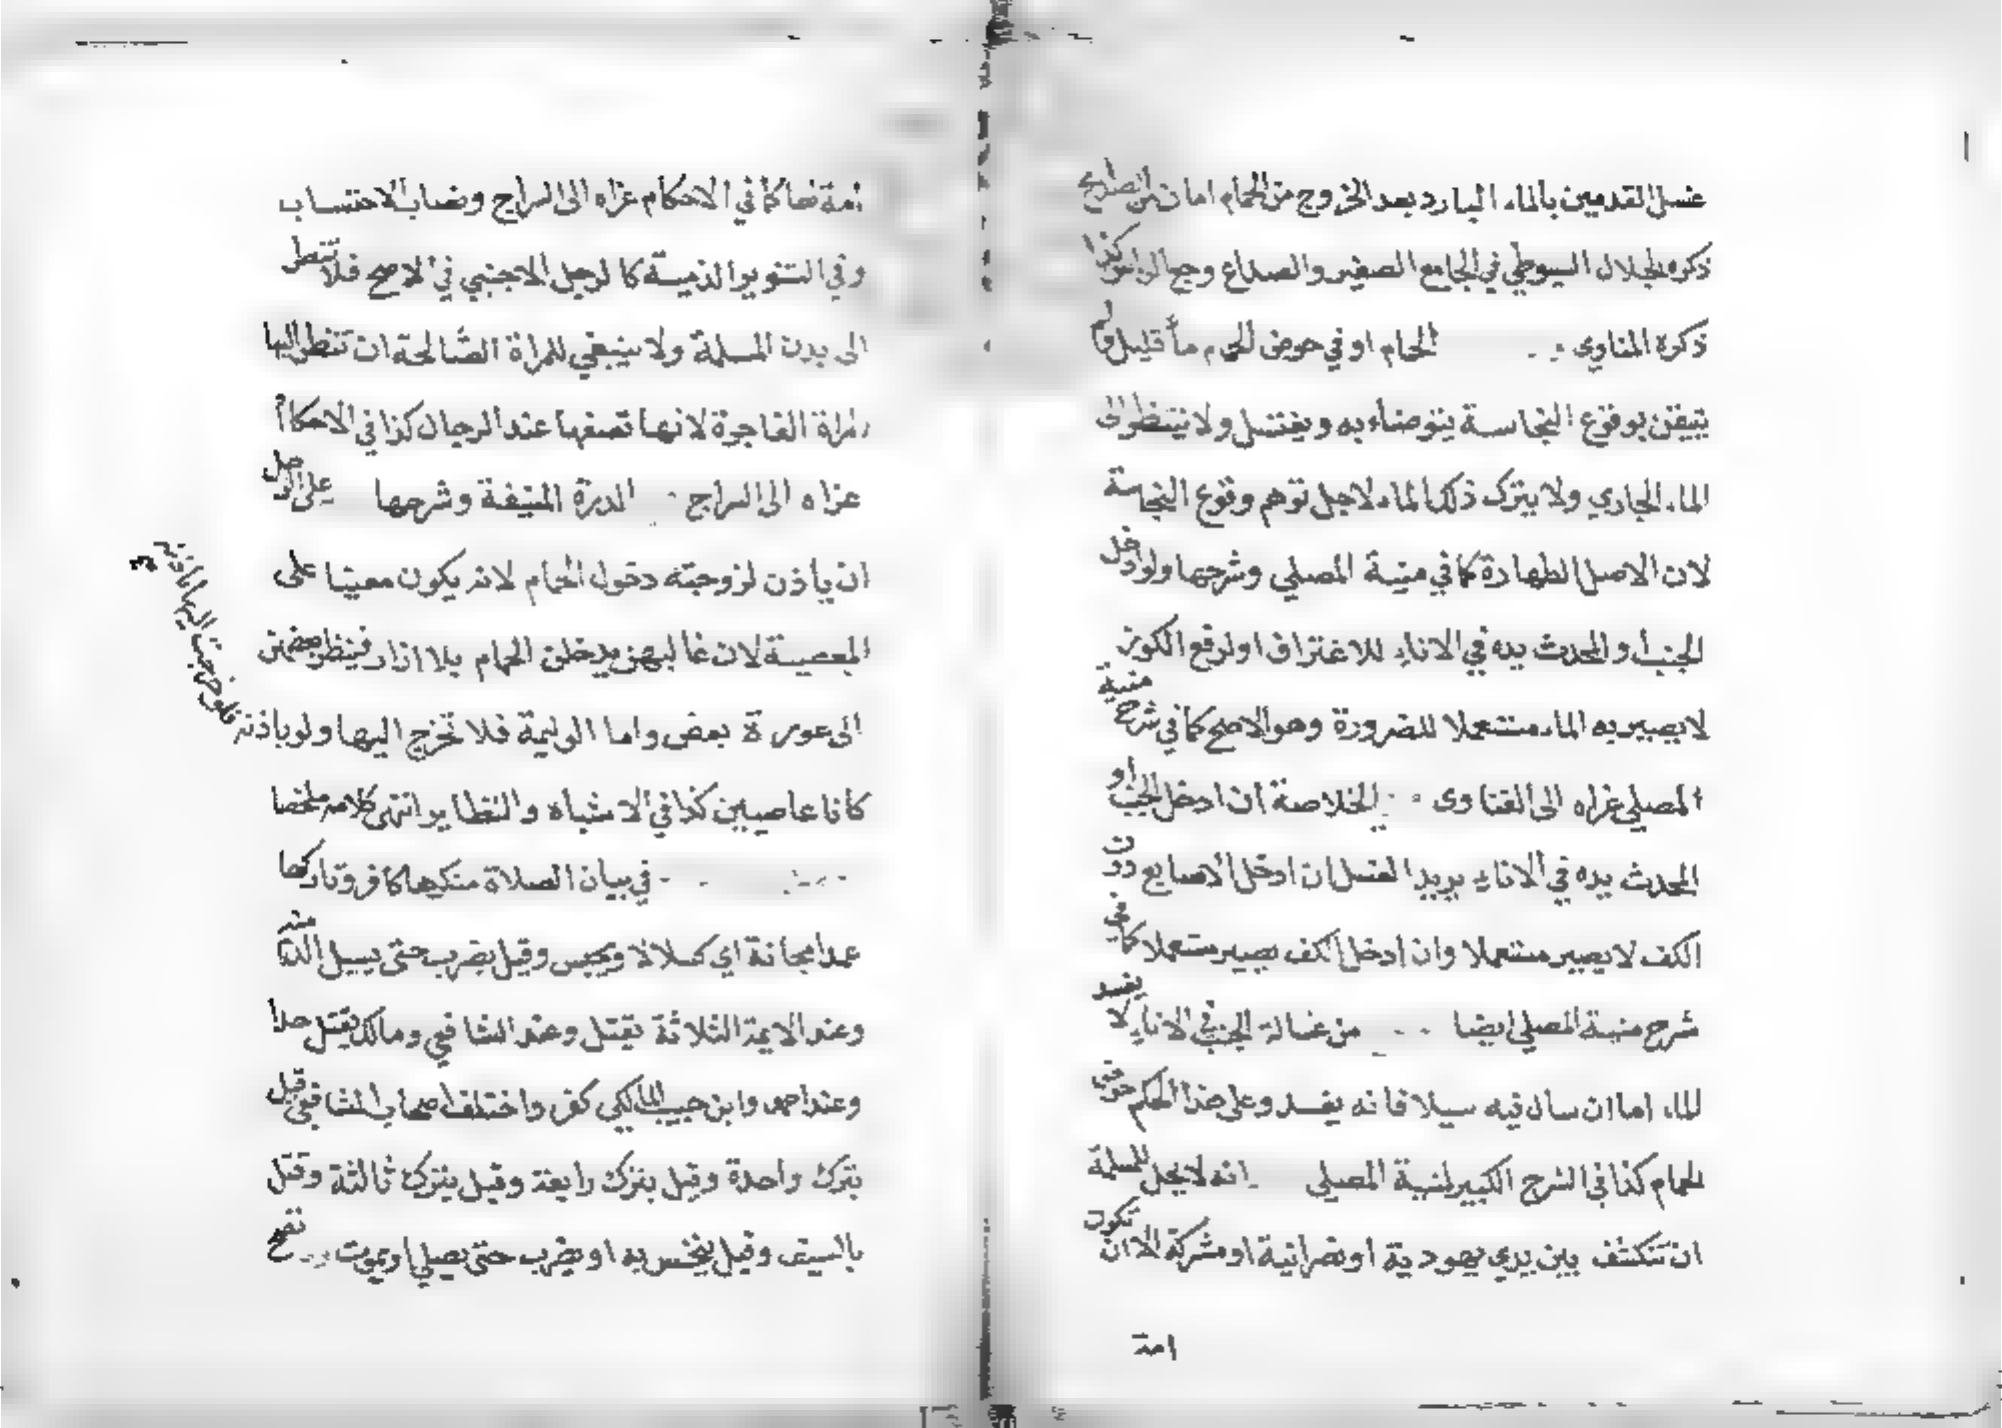 غسل القدمين بالماء البارد بعد الخروج من الحمام امان من الصداع
ذكره الجلال السيوطي في الجامع الصغير والصداع وجع الراس كذا
ذكره المناوي الحمام او في حوض الحمام ماء قليل ولم
يتيقن بوقوع النجاسة يتوضاء به ويغتسل ولا ينتظر الى
الماء الجاري ولا يترك ذلك الماء لاجل توهم وقوع النجاسة
لان الاصل الطهارة كما في منية المصلي وشرحها ولو ادخل
الجنب او المحدث يده في الاناء للاغتراف او لرفع الكوز
لا يصير به الماء مستعملا للضرورة وهو الاصح كما في شرح منية
المصلي عزاه الى الفتاوى الخلاصة ان ادخل الجنب او
المحدث يده في الاناء يريد الغسل ان ادخل الاصابع دون
الكف لا يصير مستعملا وان ادخل الكف يصير مستعملا كما في
شرح منية المصلي ايضا من غسالة الجنب في الاناء لا يفسد
الماء اما ان سال فيه سيلا فانه يفسد وعلى هذا الحكم حوض
الحمام كذا في الشرح الكبير لمنية المصلي انه لا يحل للمسلمة
ان تنكشف بين يدي يهودية او نصرانية او مشركة الا ان تكون
امة
امة لها كما في الاحكام عزاه الى السراج ونصاب الاحتساب
وفي التنوير الذمية كالرجل الاجنبي في الاصح فلا تنظر
الى بدن المسلمة ولا ينبغي للمراة الصالحة ان تنظر اليها
المراة الفاجرة لانها تصفها عند الرجال كذا في الاحكام
عزاه الى السراج الدرة المنيفة وشرحها على الرجل
ان ياذن لزوجته دخول الحمام لانه يكون معينا على
المعصية لان غالبهن يدخلن الحمام بلا ازار فينظر بعضهن
الى عورة بعض واما الوليمة فلا تخرج اليها ولو باذنه
فلو خرجت اليها باذنه صح
كانا عاصيين كذا في الاشباه والنظاير انتهى كلامه ملخصا
في بيان الصلاة منكرها كافر وتاركها
عمدا مجانة اي كسلا لا ويحبس وقيل يضرب حتى يسيل الدم منه
وعند الايمة الثلاثة يقتل وعند الشافعي ومالك يقتل حدا
وعند احمد وابن حبيب المالكي كفر واختلف اصحاب الشافعي قيل
بترك واحدة وقيل بترك رابعة وقيل بترك ثالثة وقتل
بالسيف وقيل ينخس به او يضرب حتى يصلي او يموت